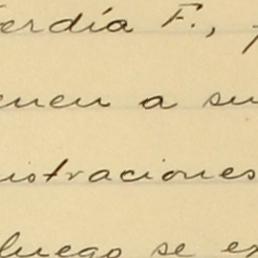 erdía F.,
enen a su
istraciones
luego se ex